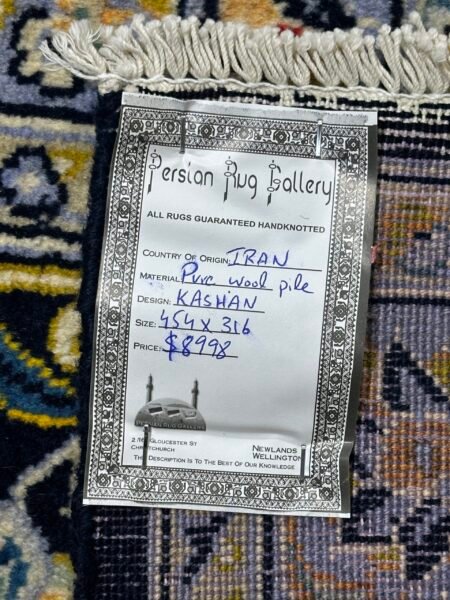 Persian Rug Gallery
ALL RUGS GUARANTEED HANDKNOTTED
COUNTRY OF ORIGIN: IRAN
MATERIAL: Pure wool pile
DESIGN: KASHAN
SIZE: 454 x 316
PRICE: $8998
PERSIAN RUG GALLERY
GLOUCESTER ST
CHRISTCHURCH
NEWLANDS
WELLINGTON
THE DESCRIPTION IS TO THE BEST OF OUR KNOWLEDGE